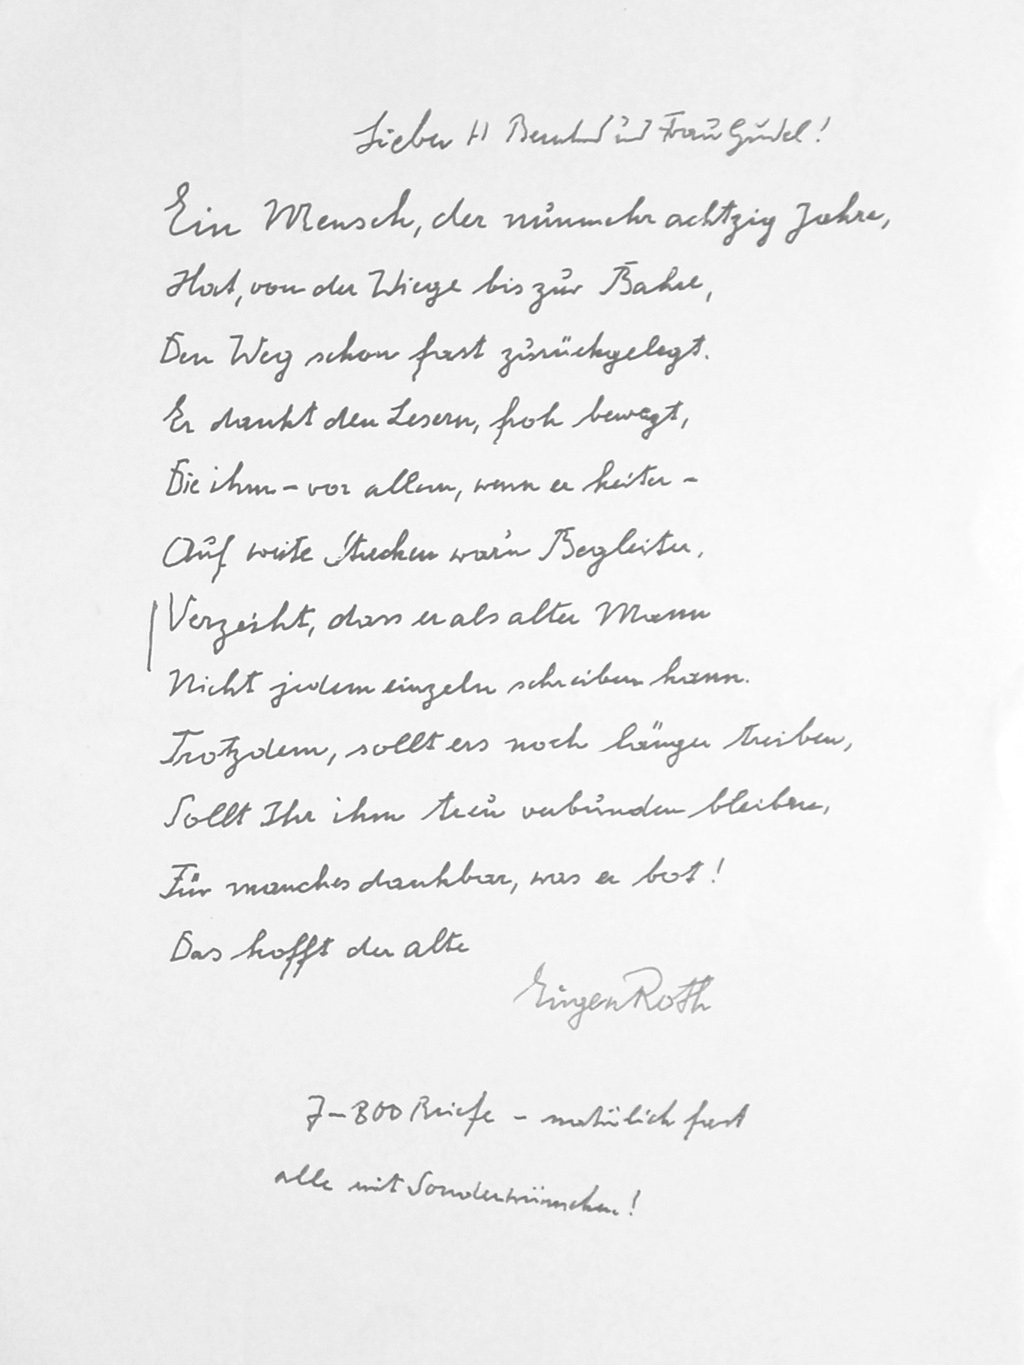 Lieber H Bernhard und Frau Gudel!
Ein Mensch, der nunmehr achtzig Jahre,
Hat, von der Wiege bis zur Bahre,
Den Weg schon fast zurückgelegt.
Er dankt den Lesern, froh bewegt,
Die ihm – vor allem, wenn er heiter –
Auf weite Strecken war'n Begleiter,
Verzeiht, dass er als alter Mann
Nicht jedem einzeln schreiben kann.
Trotzdem, sollt ers noch länger treiben,
Sollt Ihr ihm treu verbunden bleiben,
Für manches dankbar, was er bot!
Das hofft der alte
Eugen Roth
7–800 Briefe – natürlich fast
alle mit Sonderwünschen!